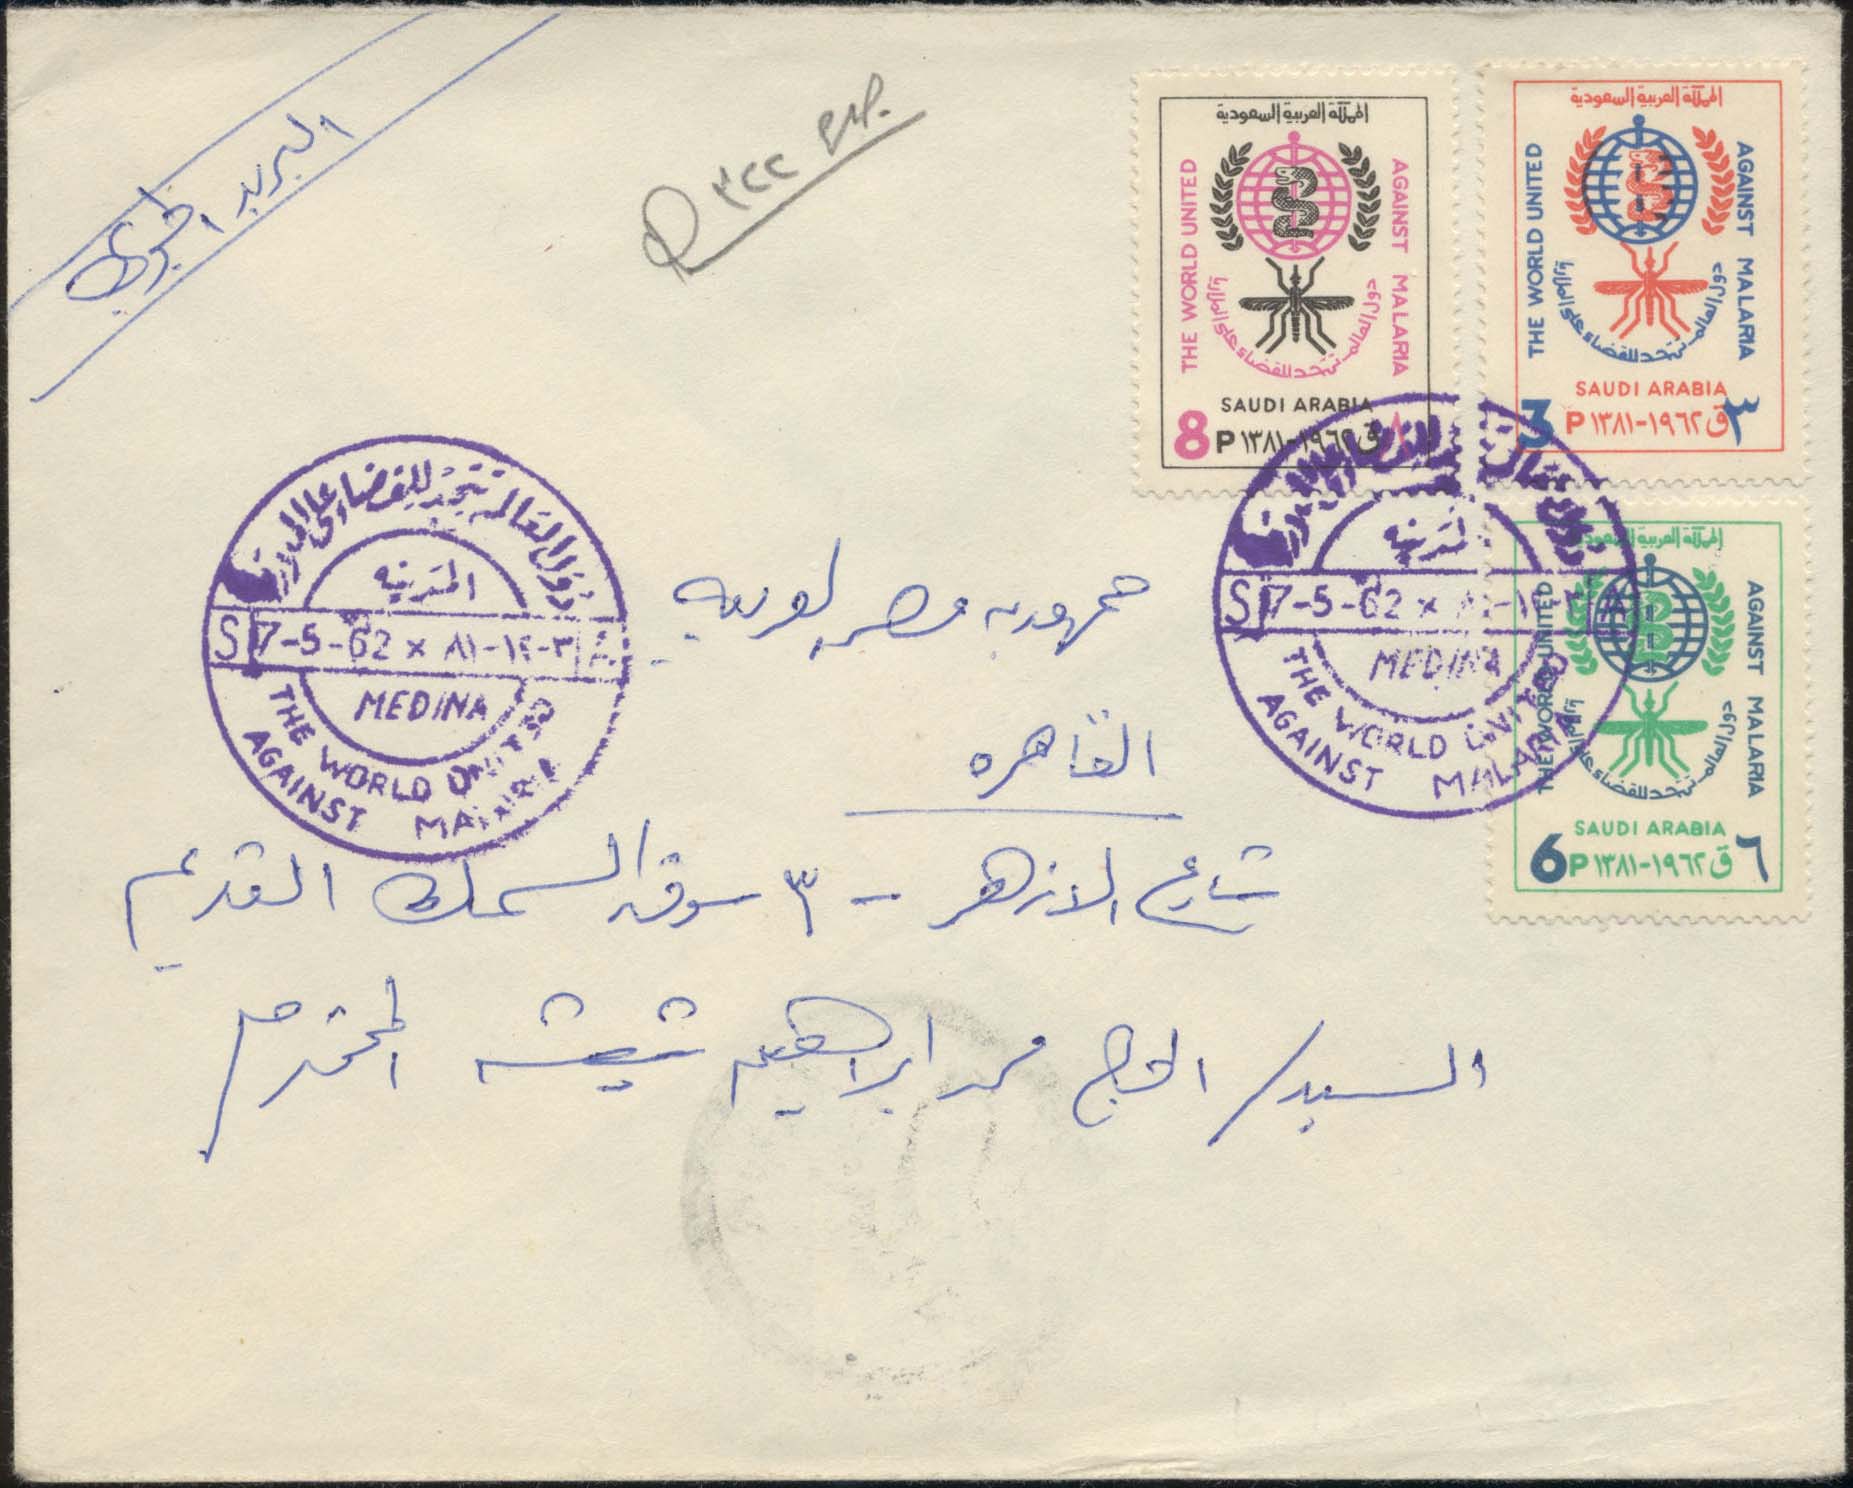 البريد الجوي
R ٣٢٢
المملكة العربية السعودية
THE WORLD UNITED
AGAINST MALARIA
دول العالم تتحد للقضاء على الملاريا
SAUDI ARABIA
8 P ١٣٨١-١٩٦٢ ق ٨
المملكة العربية السعودية
THE WORLD UNITED
AGAINST MALARIA
دول العالم تتحد للقضاء على الملاريا
SAUDI ARABIA
3 P ١٣٨١-١٩٦٢ ق ٣
المملكة العربية السعودية
THE WORLD UNITED
AGAINST MALARIA
دول العالم تتحد للقضاء على الملاريا
SAUDI ARABIA
6 P ١٣٨١-١٩٦٢ ق ٦
دول العالم تتحد للقضاء على الملاريا
المدينه
S 7-5-62 x ٨١-١٢-٣
MEDINA
THE WORLD UNITED
AGAINST MALARIA
دول العالم تتحد للقضاء على الملاريا
المدينه
S 7-5-62 x ٨١-١٢-٣
MEDINA
THE WORLD UNITED
AGAINST MALARIA
جمهورية مصر العربيه
القاهره
شارع الازهر - ٣ سوق السمك القديم
السيد / الحاج محمد ابراهيم شيشه المحترم